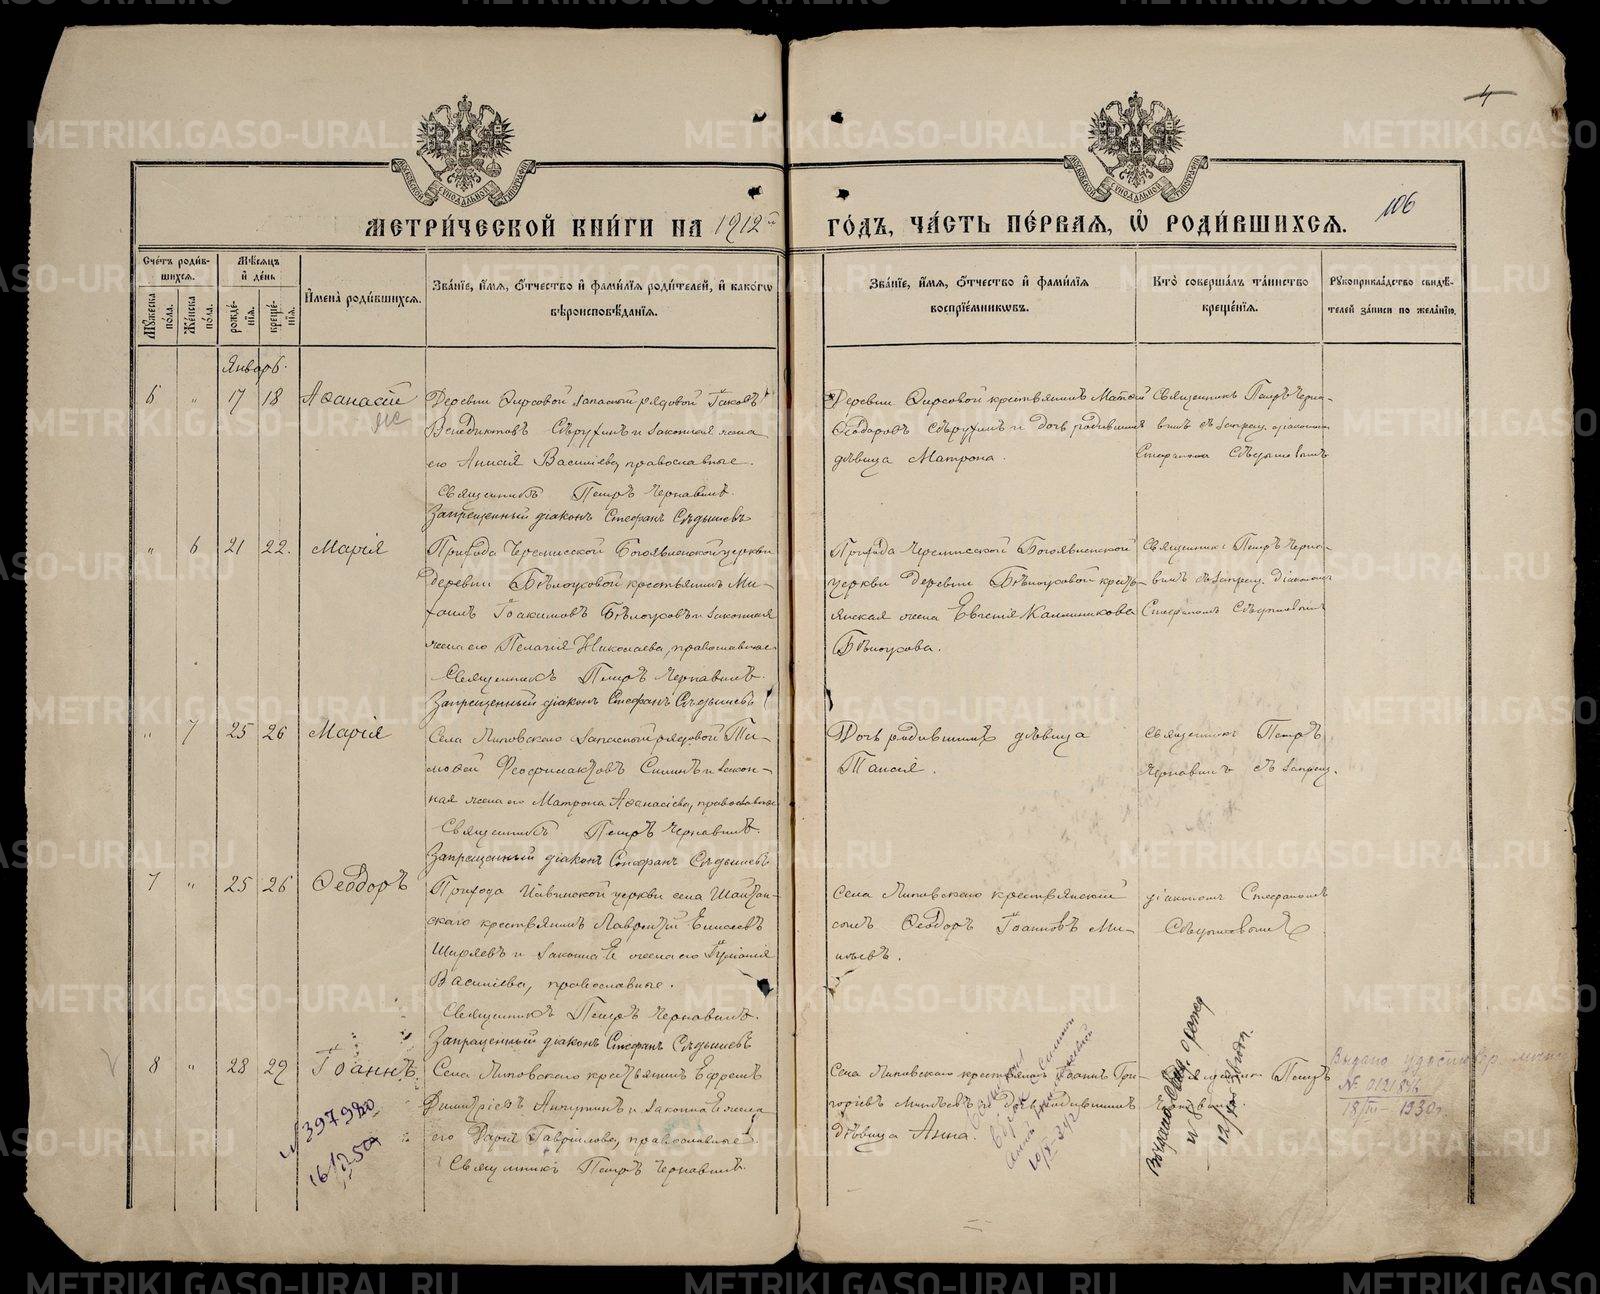 4
МОСКОВСКОЙ СУНОДАЛЬНОЙ ТИПОГРАФІИ
МОСКОВСКОЙ СУНОДАЛЬНОЙ ТИПОГРАФІИ
МЕТРИ́ЧЕСКОЙ КНИ́ГИ НА 1912й ГО́ДЪ, ЧА́СТЬ ПЕ́РВАЯ, Ѡ РОДИ́ВШИХСЯ.
106
Сче́тъ роди́в-
шихся.
Мꙋ́жеска по́ла.
Же́нска по́ла.
Мѣ́сяцъ и де́нь
рожде́-
нія.
креще́-
нія.
Имена̀ роди́вшихся.
Зва́ніе, и́мя, о́тчество и фами́лія роди́телей, и како́гѡ
вѣроисповѣ́данія.
Зва́ніе, и́мя, о́тчество и фами́лія
воспріе́мникѡвъ.
Кто̀ соверша́лъ та́инство
креще́нія.
Рꙋкоприкла́дство свидѣ́-
телей за́писи по жела́нію.
Январь.
6 " 17 18 Аѳанасій
Деревни Ѳирсовой запасный рядовой Іаковъ
Венедиктовъ и законная жена
его Анисія Васильева, православные.
Священникъ Петръ Чернавинъ.
Запрещенный діаконъ Стефанъ Сѣдышевъ
Деревни Ѳирсовой крестьянинъ Матѳей
Ѳеодоровъ и дочь родившихъ
дѣвица Матрона.
Священникъ Петръ Черна-
винъ съ запрещ. діакономъ
Стефаномъ Сѣдышевымъ
" 6 21 22. Марія
Прихода Черемисской Богоявленской церкви
деревни Бѣлоусовой крестьянинъ Ми-
хаилъ Іоакимовъ Бѣлоусовъ и законная
жена его Пелагія Николаева, православные.
Священникъ Петръ Чернавинъ.
Запрещенный діаконъ Стефанъ Сѣдышевъ
Прихода Черемисской Богоявленской
церкви деревни Бѣлоусовой кресть-
янская жена Евгенія Каллиникова
Бѣлоусова.
Священникъ Петръ Черна-
винъ съ запрещ. діакономъ
Стефаномъ Сѣдышевымъ
" 7 25 26 Марія
Села Липовскаго запасный рядовой Ти-
моѳей Феофилактовъ и закон-
ная жена его Матрона Аѳанасіева, православные
Священникъ Петръ Чернавинъ.
Запрещенный діаконъ Стефанъ Сѣдышевъ
Дочь родившихъ дѣвица
Таисія.
Священникъ Петръ
Чернавинъ съ запрещ.
7 " 25 26 Ѳеодоръ
Прихода церкви села Шайтан-
скаго крестьянинъ Лаврентій Елисеевъ
Ширяевъ и законная жена его Іуліанія
Васильева, православные.
Священникъ Петръ Чернавинъ.
Запрещенный діаконъ Стефанъ Сѣдышевъ
Села Липовскаго крестьянскій
сынъ Ѳеодоръ Іоанновъ Ми-
ньевъ.
діакономъ Стефаномъ
Сѣдышевымъ
8 " 28 29 Іоаннъ
Села Липовскаго крестьянинъ Ефремъ
Димитріевъ и законная жена
его Дарія Гавріилова, православные.
Священникъ Петръ Чернавинъ.
Села Липовскаго крестьянинъ Іоаннъ Гри-
горіевъ Миньевъ и дочь родившихъ
дѣвица Анна.
Священникъ Петръ
Чернавинъ.
Выдано удостовер. личности
№ 397980